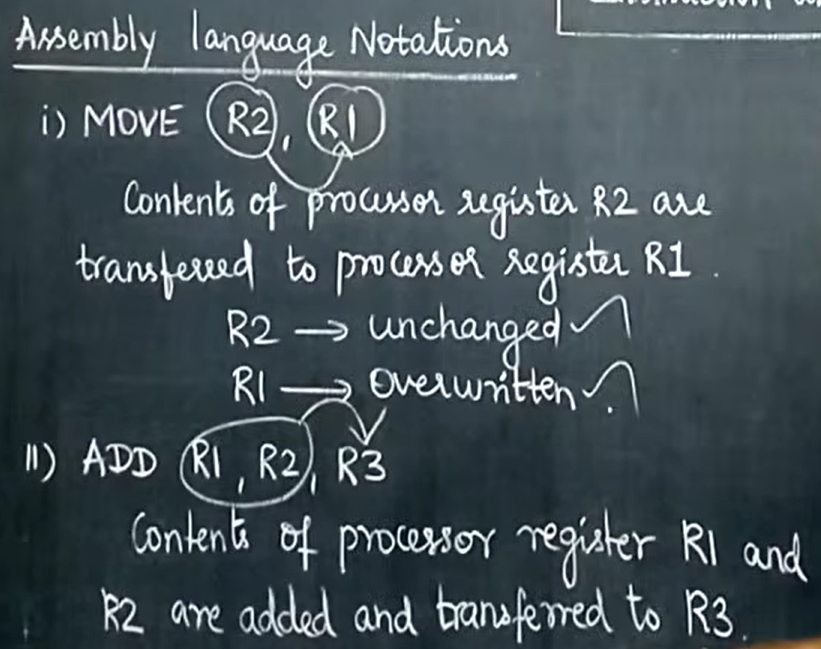 Assembly language Notations
i) MOVE R2, R1
Contents of processor register R2 are
transfered to processor register R1.
R2 → unchanged
R1 → Overwritten
II) ADD R1, R2, R3
Contents of processor register R1 and
R2 are added and transferred to R3.